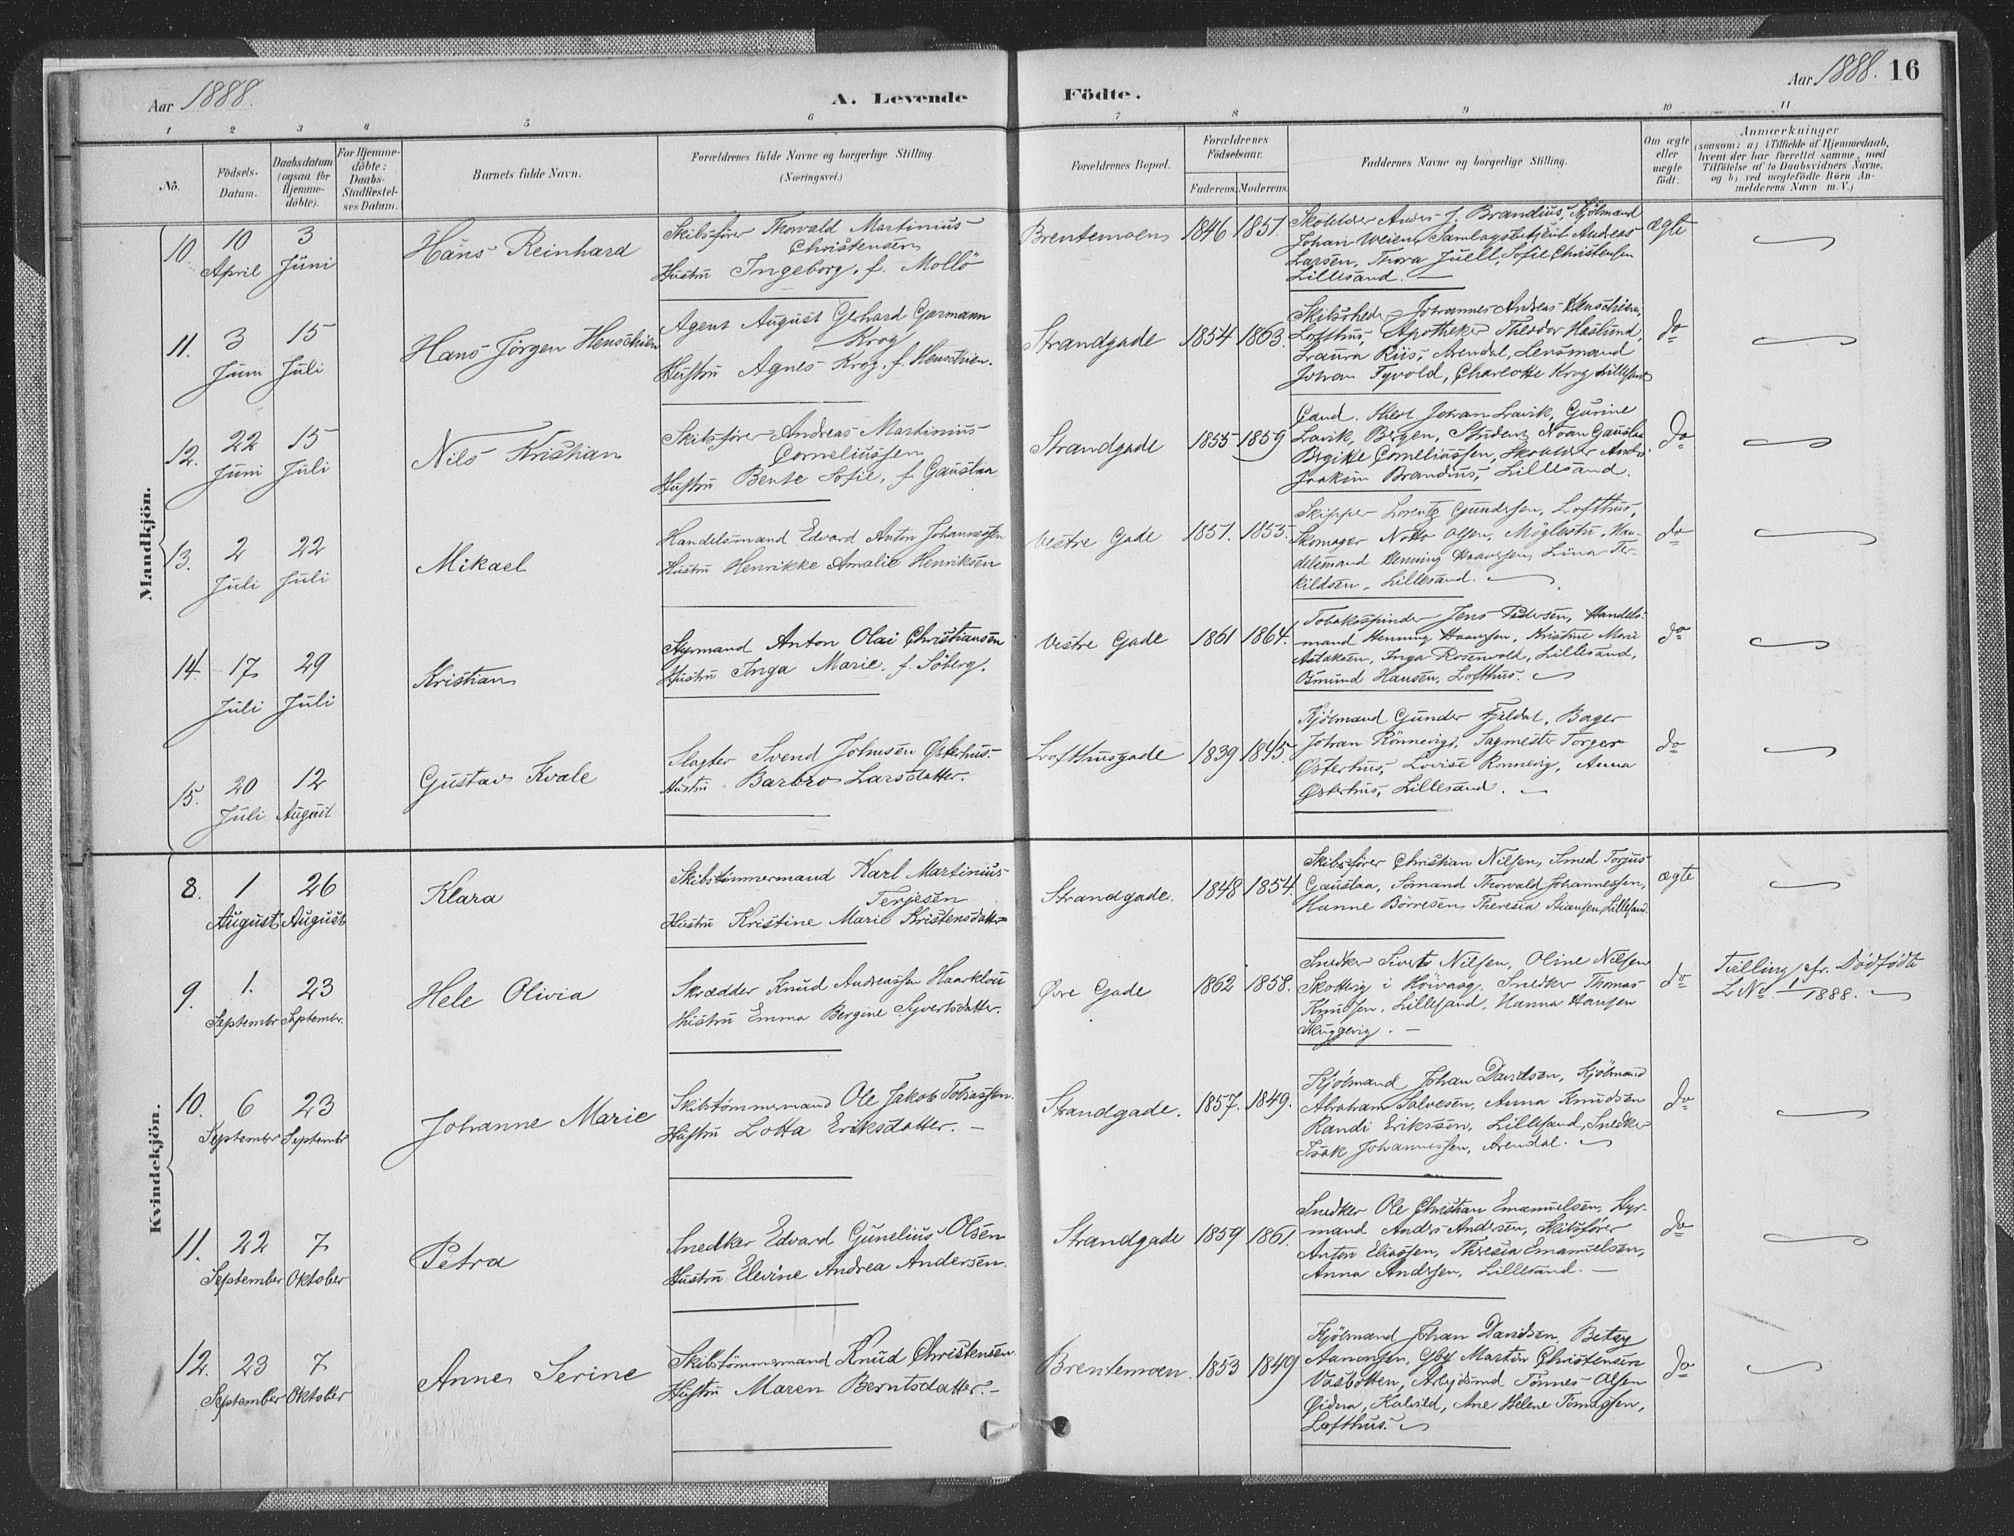 Aar 1888.
A. Levende
Födte.
Aar 1888. 16
1 2 3 4 5 6 7 8 9 10 11
No.
Födsels-
Datum.
Daabsdatum
(ogsaa for
Hjemme-
döbte).
For Hjemme-
döbte:
Daabs-
Stadfæstel-
ses Datum.
Barnets fulde Navn.
Forældrenes fulde Navne og borgerlige Stilling
(Næringsvei.)
Forældrenes Bopæl.
Forældrenes
Födselsaar.
Faderens. Moderens.
Faddernes Navne og borgerlige Stilling.
Om ægte
eller
uægte
födt.
Anmærkninger
(saasom: a) i Tilfælde af Hjemmedaab,
hvem der har forrettet samme, med
Tilföielse af to Daabsvidners Navne,
og b) ved uægtefödte Börn An-
melderens Navn m. V.)
Mandkjön.
10. 10 April
3 Juni
Hans Reinhard
Skibsfører Thorvald Martinius
Christensen
Hustru Ingeborg, f. Mollö
Brentemoen 1846 1851.
Anders J. Brandius, Kjöbmand
Johan Weien, Samlagsbetjent Andreas
Larsen, Thora Juell, Sofie Christensen
Lillesand.
ægte
11. 3 Juni
15 Juli
Hans Jörgen Henschien
Agent August Gerhard Garmann
Krog
Hustru Agnes Krog, f. Henschien.
Strandgade 1854 1863.
Skibsreder Johannes Andreas Henschien,
Lofthus, Apotheker Theodor Haslund,
Laura Riis, Arendal, Lensmand
Johan Tyvold, Charlotte Krog Lillesand
do
12. 22 Juni
15 Juli
Nils Kristian
Skibsfører Andreas Martinius
Corneliussen
Hustru Bente Sofie, f. Gaustaa
Strandgade 1855 1859
Cand. theol Johan Lavik, Gurine
Lavik, Bergen, Student Noan Gaustaa
Birgitte Corneliussen, Anders
Joakim Brandius, Lillesand.
do
13. 2 Juli
22 Juli
Mikael
Handelsmand Edvard Anton Johannessen
Hustru Henrikke Amalie Henriksen
Vestre Gade 1851. 1855.
Skipper Lorentz Gundersen, Lofthus,
Skomager Notto Olsen, Möglestu, Han-
delsmand Henning Haanssen, Lina Ter-
kildsen, Lillesand.
do
14. 17 Juli
29 Juli
Kristian
Styrmand Anton Olai Christiansen
Hustru Inga Marie, f. Söberg.
Vestre Gade 1861 1864.
Tobaksspinder Jens Pedersen, Handels-
mand Henning Haanssen, Kristine Marie
Aslaksen, Inga Rosenvold, Lillesand,
Osmund Hansen, Lofthus.
do
15. 20 Juli
12 August
Gustav Kvale
Slagter Svend Johnsen Østerhus.
Hustru Barbro Larsdatter.
Lofthusgade 1839 1845.
Kjöbmand Gunder Fjeldal, Bager
Johan Rönnevig, Sagmester Torger
Østerhus, Lovise Rönnevig, Anna
Østerhus, Lillesand.
do
Kvindekjön.
8. 1 August
26 August
Klara
Skibstømmermand Karl Martinius
Terjesen
Hustru Kristine Marie Kristensdatter
Strandgade. 1848 1854.
Skibsfører Christian Nilsen, Smed Torjus
Gaustaa, Sömand Thorvald Johannessen,
Hanne Börresen, Theresia Stiansen, Lillesand.
ægte
9. 1. September
23 Septembr.
Hele Olivia
Skrædder Knud Andreassen Haarklou
Hustru Emma Bergine Syvertsdatter.
Øvre Gade 1862 1858.
Snedker Sivert Nilsen, Oline Nilsen
Skottevig i Höivaag, Snedker Thomas
Knudsen, Lillesand, Hanna Hansen
Skuggevig.
do
Tvilling, cfr. Dödfödte
L No 1/1888.
10. 6 Septembr
23 Septembr
Johanne Marie
Skibstømmermand Ole Jakob Tobiassen.
Hustru Lotta Eriksdatter.
Strandgade. 1857. 1849.
Kjöbmand Johan Davidsen, Kjöbmand
Abraham Salvesen, Anna Knudsen
Randi Erikssen, Lillesand, Snedker
Isak Johannessen, Arendal.
do
11. 22 September
7 Oktober
Petra
Snedker Edvard Gunelius Olsen
Hustru Elevine Andrea Andersen.
Strandgade 1859 1861.
Snedker Ole Christian Emanuelsen, Styr-
mand Anders Andersen, Skibsfører
Anton Eliassen, Theresia Emanuelsen,
Anna Andersen, Lillesand.
do
12. 23 September
7 Oktober
Anne Serine
Skibstømmermand Knud Christensen
Hustru Maren Berntsdatter.
Brentemoen. 1853 1849
Kjöbmand Johan Davidsen, Betzy
Aanonsen, Martin Christensen
Vasbotten, Arbejdsmd Tönnes Olsen
Kalvild, Ane Helene Tönnessen,
Lofthus.
do